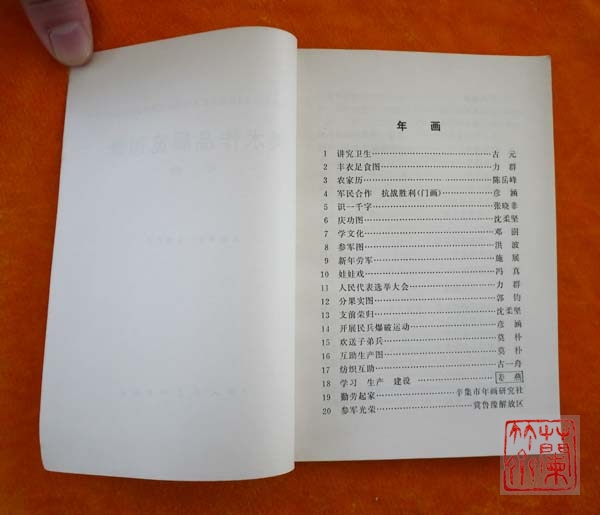 年 画
1 讲究卫生………………………………古 元
2 丰衣足食图……………………………力 群
3 农家历…………………………………陈岳峰
4 军民合作 抗战胜利(门画)…………彦 涵
5 识一千字………………………………张晓非
6 庆功图…………………………………沈柔坚
7 学文化…………………………………邓 澍
8 参军图…………………………………洪 波
9 新年劳军………………………………施 展
10 娃娃戏…………………………………冯 真
11 人民代表选举大会……………………力 群
12 分果实图………………………………郭 钧
13 支前荣归………………………………沈柔坚
14 开展民兵爆破运动……………………彦 涵
15 欢送子弟兵……………………………莫 朴
16 互助生产图……………………………莫 朴
17 纺织互助………………………………古一舟
18 学习 生产 建设 ……………………姜 燕
19 勤劳起家………………………辛集市年画研究社
20 参军光荣………………………冀鲁豫解放区